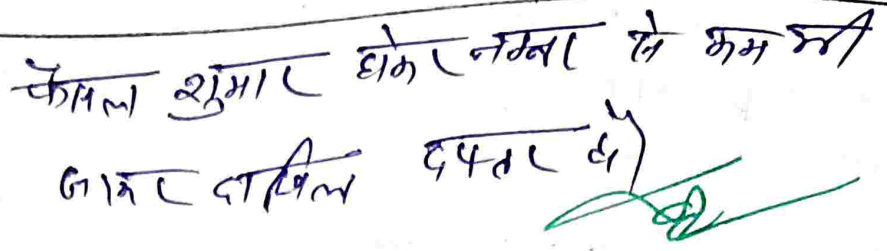 फैसल शुमार होकर नम्बर से कम की
जाकर दाखिल दफ्तर हो